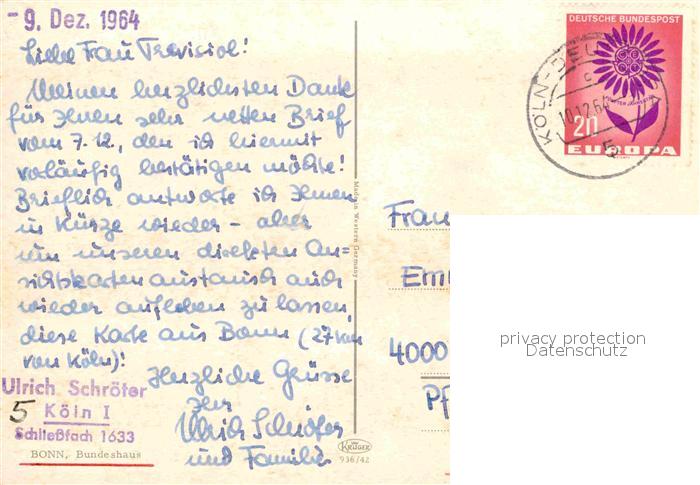 - 9. Dez. 1964
Liebe Frau Trevisiol!
Meinen herzlichsten Dank
für Ihnen sehr netten Brief
vom 7.12., den ich hiermit
vorläufig bestätigen möchte!
Brieflich antworte ich Ihnen
in Kürze wieder - aber
um unseren direkten An=
sichtskarten austausch auch
wieder aufleben zu lassen,
diese Karte aus Bonn (27 km
von Köln)!
Herzliche Grüsse
Ihr
Ulrich Schröter
und Familie
Ulrich Schröter
5 Köln I
Schließfach 1633
BONN, Bundeshaus
Made in Western Germany
KRÜGER
936/42
DEUTSCHE BUNDESPOST
20
EUROPA
KÖLN-
10.12.64
5
Frau
4000
privacy protection
Datenschutz